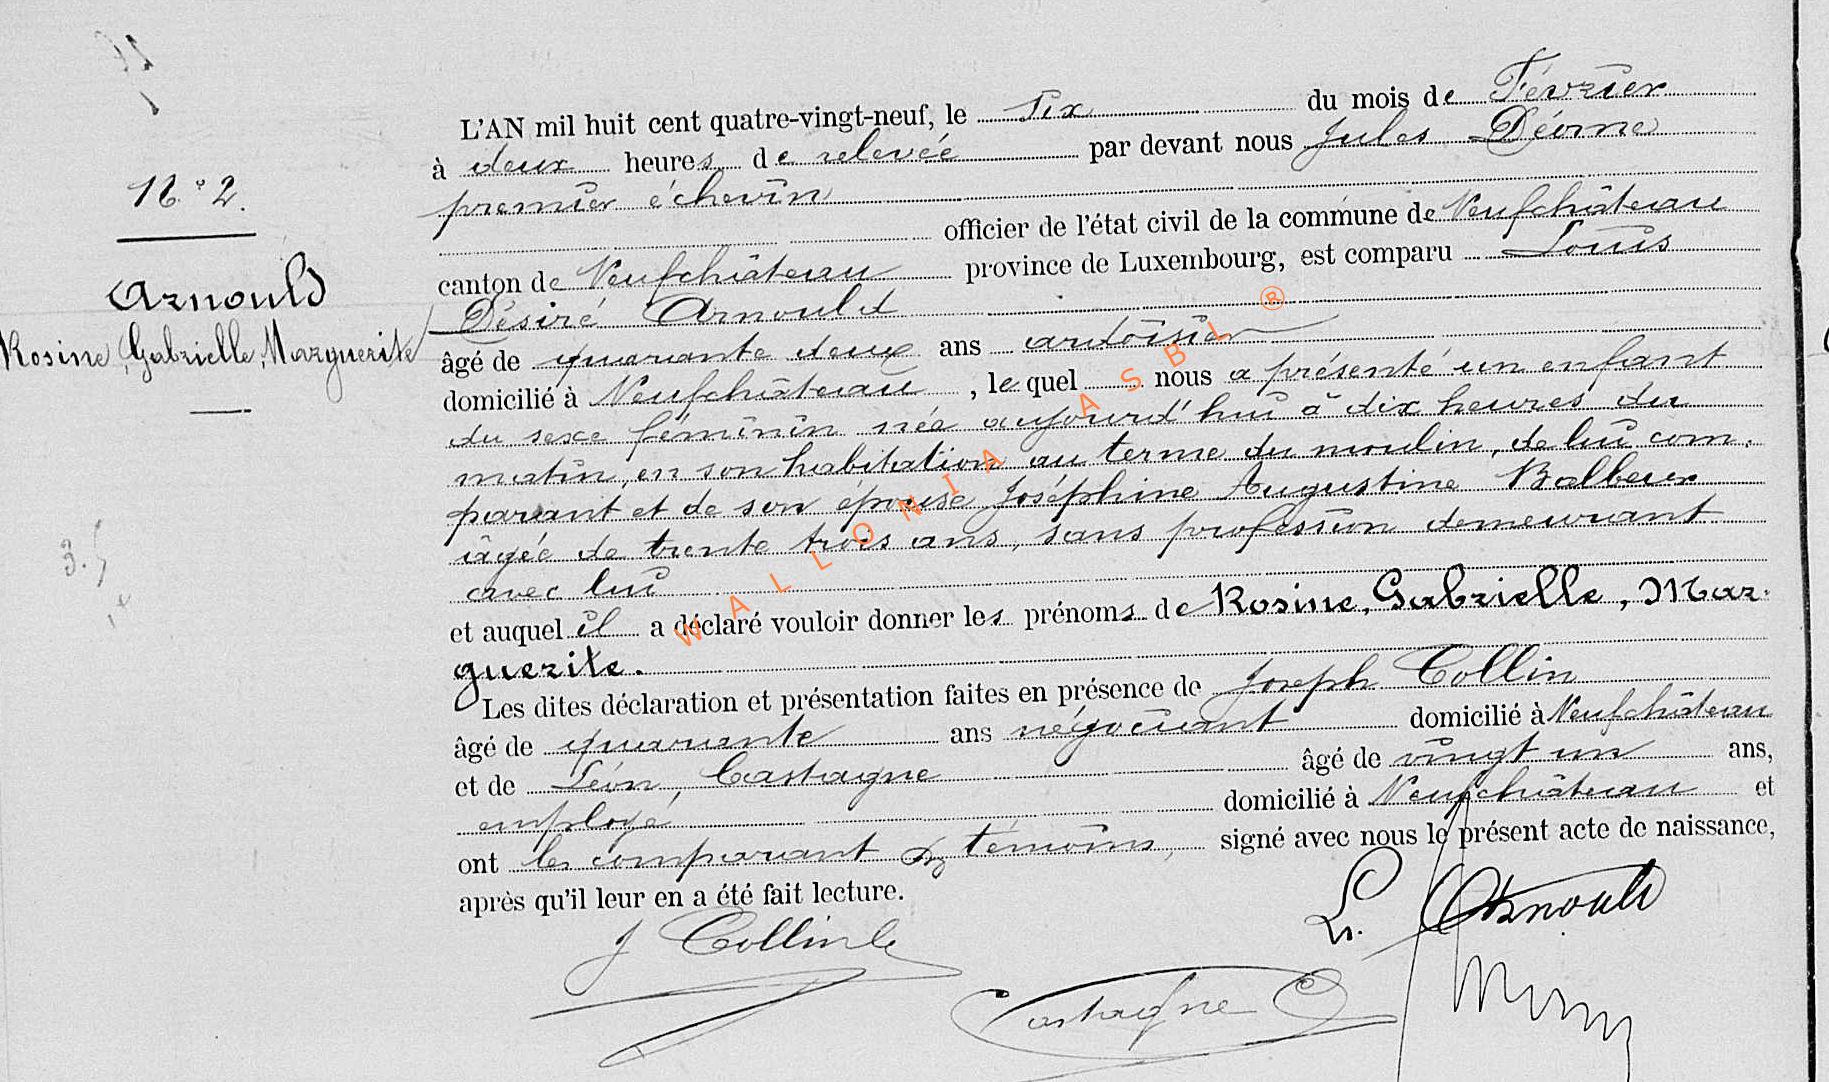 N° 2.
Arnould
Rosine, Gabrielle, Marguerite
L'AN mil huit cent quatre-vingt-neuf, le six du mois de Février
à deux heures de relevée par devant nous Jules
premier échevin
officier de l'état civil de la commune de Neufchâteau
canton de Neufchâteau province de Luxembourg, est comparu Louis
Désiré Arnould
âgé de quarante deux ans ardoisier
domicilié à Neufchâteau, lequel nous a présenté un enfant
du sexe féminin née aujourd'hui à dix heures du
matin, en son habitation au terme du moulin, de lui com-
parant et de son épouse Joséphine Augustine Balbeur
âgée de trente trois ans, sans profession demeurant
avec lui
et auquel il a déclaré vouloir donner les prénoms de Rosine, Gabrielle, Mar-
guerite.
Les dites déclaration et présentation faites en présence de Joseph Collin
âgé de quarante ans négociant domicilié à Neufchâteau
et de Léon, Castagne âgé de vingt un ans,
employé domicilié à Neufchâteau et
ont les comparant & témoins, signé avec nous le présent acte de naissance,
après qu'il leur en a été fait lecture.
J Collin
L. Arnould
Castagne
WALLONIA ASBL ®